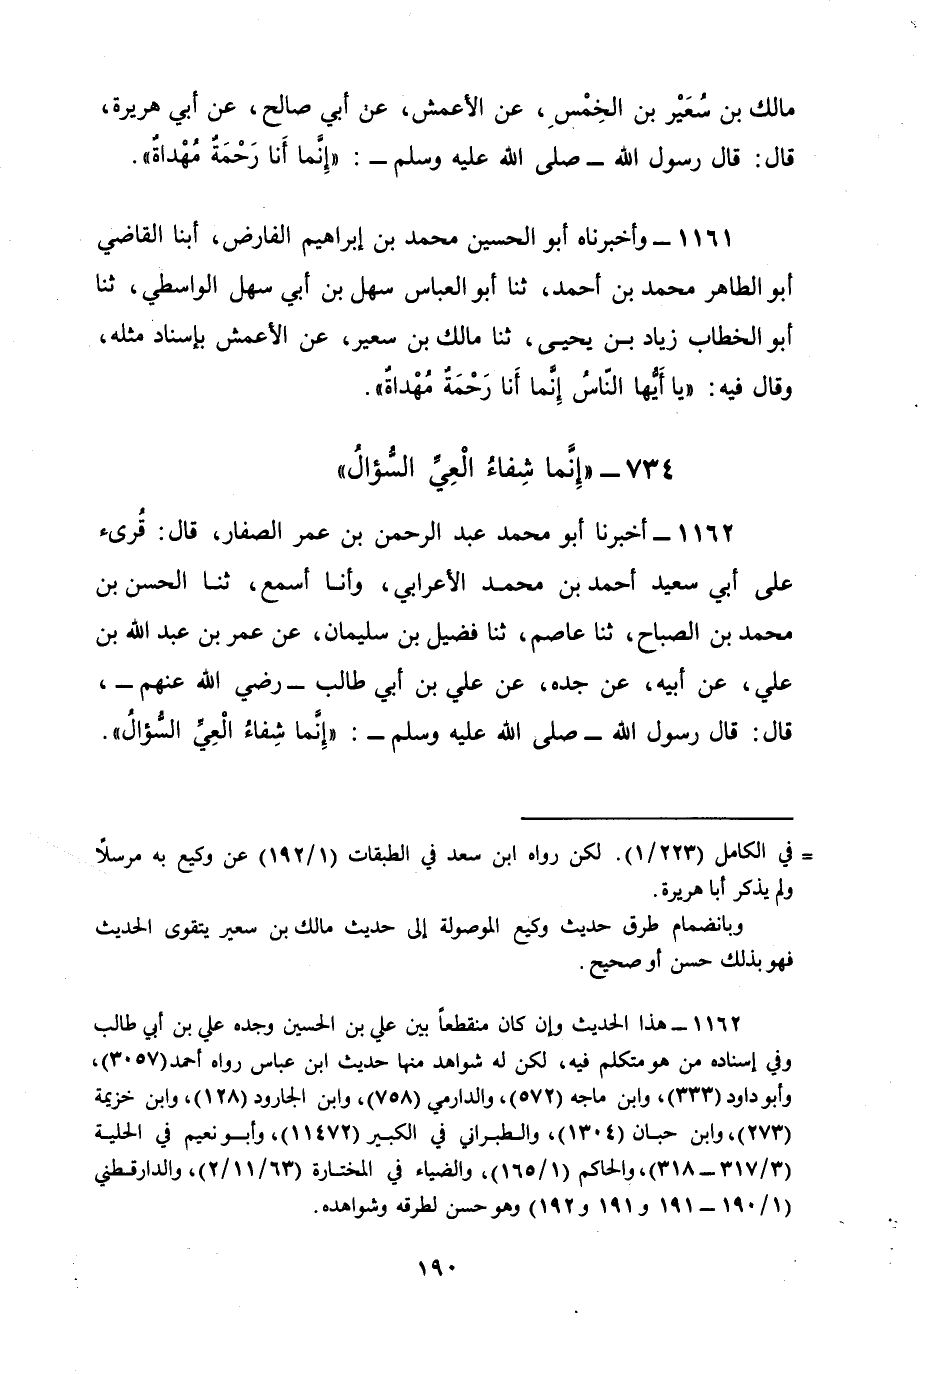 مالك بن سُعَيْر بن الخِمْس، عن الأعمش، عن أبي صالح، عن أبي هريرة،
قال: قال رسول الله ــ صلى الله عليه وسلم ــ : «إِنَّما أَنا رَحْمَةٌ مُهْداةٌ».
١١٦١ ــ وأخبرناه أبو الحسين محمد بن إبراهيم الفارض، أبنا القاضي
أبو الطاهر محمد بن أحمد، ثنا أبو العباس سهل بن أبي سهل الواسطي، ثنا
أبو الخطاب زياد بن يحيى، ثنا مالك بن سعير، عن الأعمش بإسناد مثله،
وقال فيه: «يا أَيُّها النّاسُ إِنَّما أَنا رَحْمَةٌ مُهْداةٌ».
٧٣٤ ــ «إِنَّما شِفاءُ الْعِيِّ السُّؤالُ»
١١٦٢ ــ أخبرنا أبو محمد عبد الرحمن بن عمر الصفار، قال: قُرىء
على أبي سعيد أحمد بن محمد الأعرابي، وأنا أسمع، ثنا الحسن بن
محمد بن الصباح، ثنا عاصم، ثنا فضيل بن سليمان، عن عمر بن عبد الله بن
علي، عن أبيه، عن جده، عن علي بن أبي طالب ــ رضي الله عنهم ــ ،
قال: قال رسول الله ــ صلى الله عليه وسلم ــ : «إِنَّما شِفاءُ الْعِيِّ السُّؤالُ».
= في الكامل (١/٢٢٣). لكن رواه ابن سعد في الطبقات (١٩٢/١) عن وكيع به مرسلاً
ولم يذكر أبا هريرة.
وبانضمام طرق حديث وكيع الموصولة إلى حديث مالك بن سعير يتقوى الحديث
فهو بذلك حسن أو صحيح.
١١٦٢ ــ هذا الحديث وإن كان منقطعاً بين علي بن الحسين وجده علي بن أبي طالب
وفي إسناده من هو متكلم فيه، لكن له شواهد منها حديث ابن عباس رواه أحمد (٣٠٥٧)،
وأبو داود (٣٣٣)، وابن ماجه (٥٧٢)، والدارمي (٧٥٨)، وابن الجارود (١٢٨)، وابن خزيمة
(٢٧٣)، وابن حبان (١٣٠٤)، والطبراني في الكبير (١١٤٧٢)، وأبو نعيم في الحلية
(٣١٧/٣ ــ ٣١٨)، والحاكم (١٦٥/١)، والضياء في المختارة (٢/١١/٦٣)، والدارقطني
(١٩٠/١ ــ ١٩١ و ١٩١ و ١٩٢) وهو حسن لطرقه وشواهده.
١٩٠